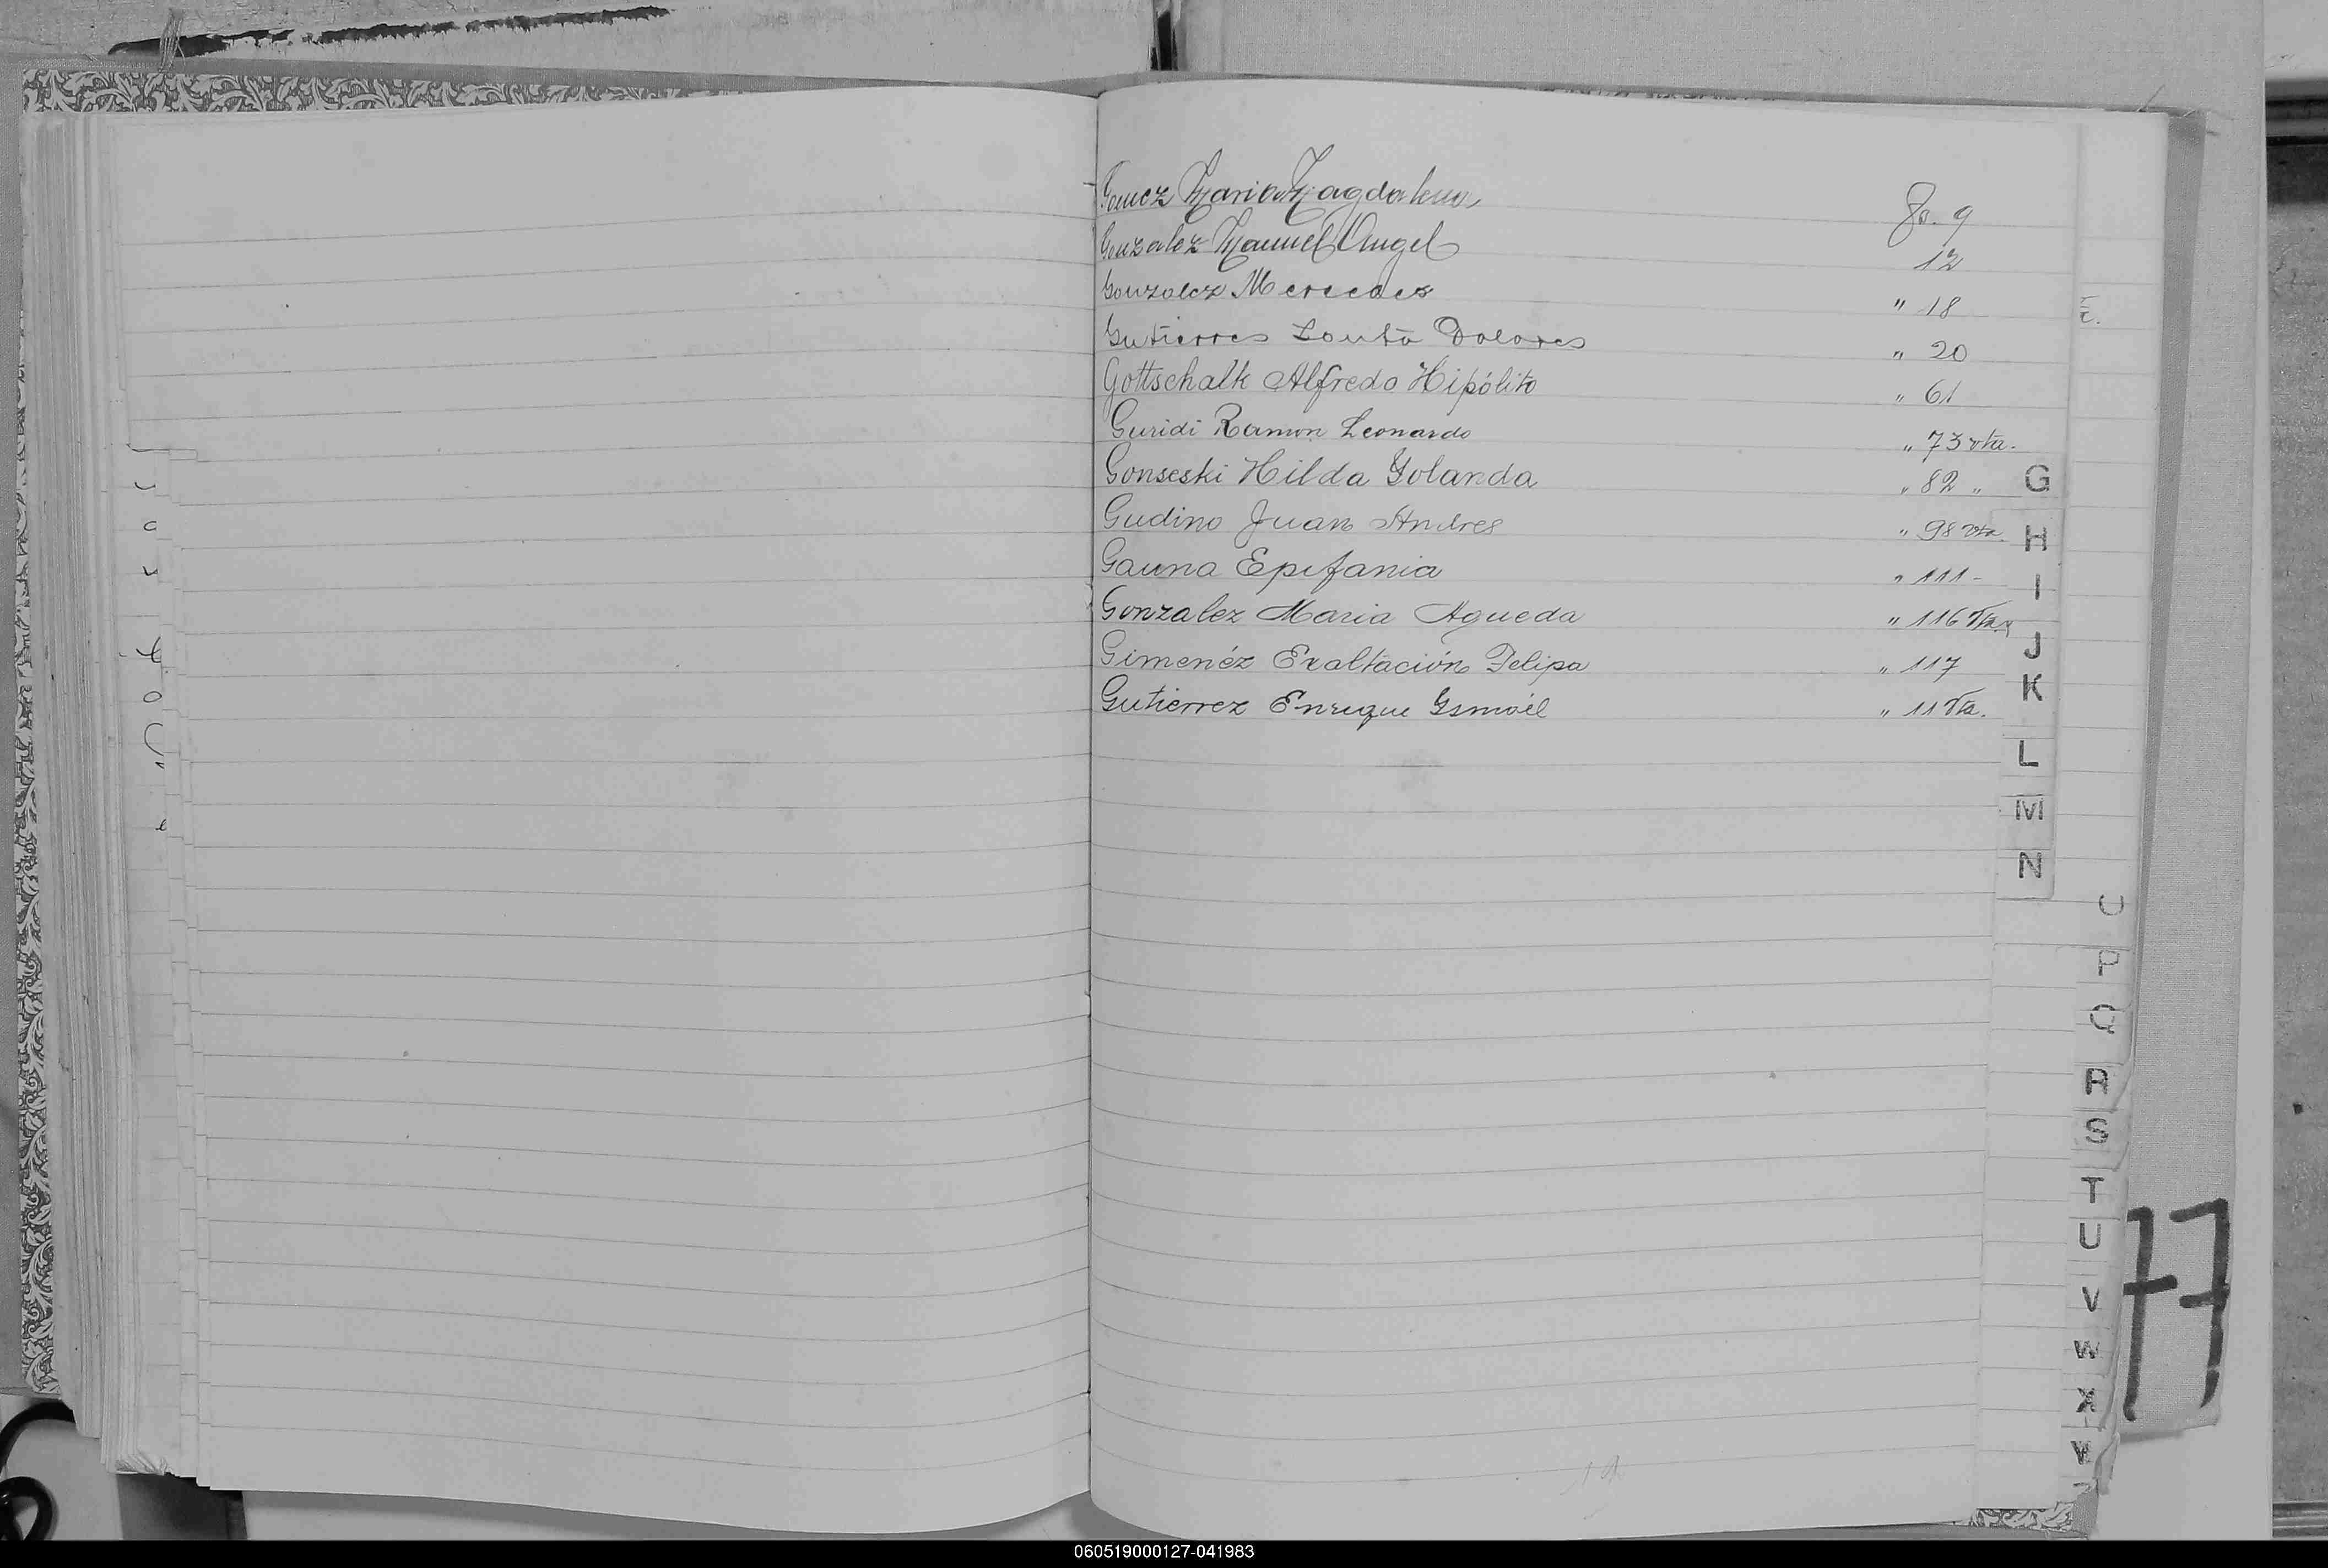 Gomez Maria Magdalena Fo. 9
Gonzalez Manuel Angel 12
Gonzalez Mercedes " 18
Gutierres Dolores " 20
Gottschalk Alfredo Hipólito " 61
Guridi Ramon Leonardo " 73 vta.
Gonseski Hilda Yolanda " 82 "
Gudino Juan Andres " 98 vta.
Gauna Epifania " 111-
Gonzalez Maria Agueda " 116 Vta.
Gimenéz Exaltación Felipa " 117
Gutierrez Enrique Ismaél " 11 Vta.
G
H
I
J
K
L
M
N
P
Q
R
S
T
U
V
W
X
77
060519000127-041983